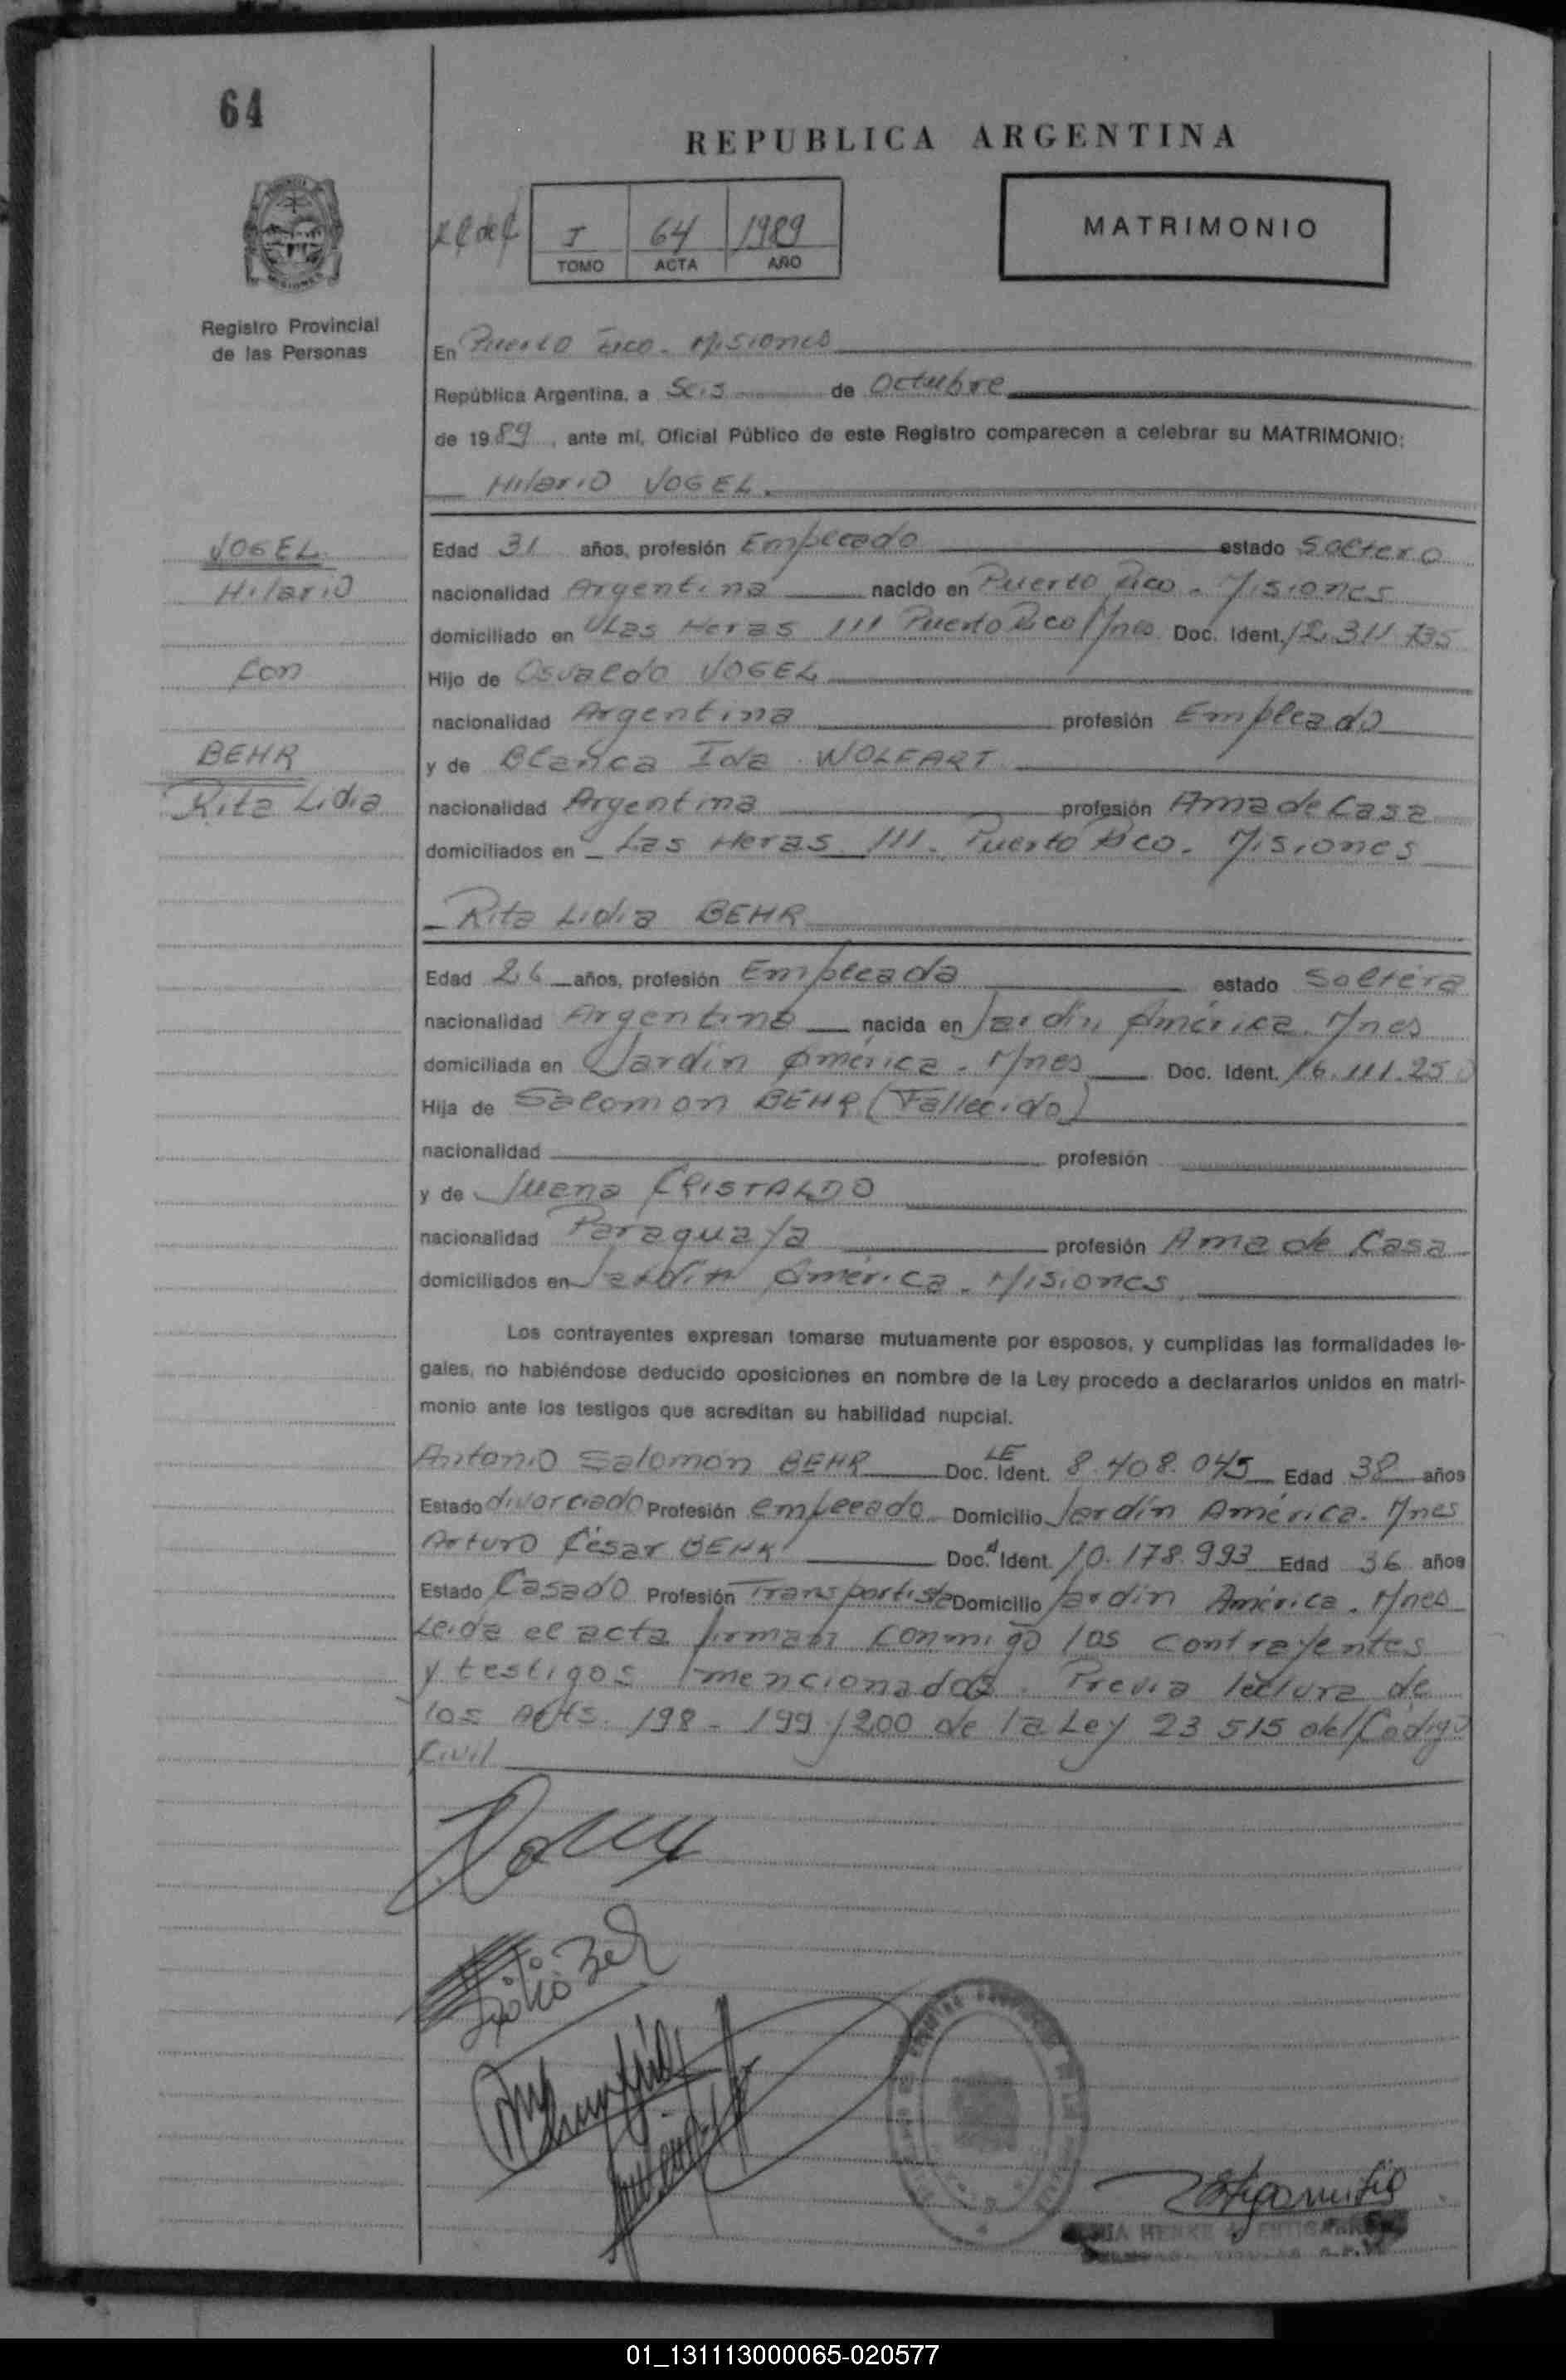 64
REPUBLICA ARGENTINA
I 64 1989
TOMO ACTA AÑO
MATRIMONIO
Registro Provincial
de las Personas
En Puerto Rico. Misiones
República Argentina, a Seis de Octubre
de 1989, ante mí, Oficial Público de este Registro comparecen a celebrar su MATRIMONIO:
Hilario VOGEL
VOGEL
Hilario
con
BEHR
Rita Lidia
Edad 31 años, profesión Empleado estado Soltero
nacionalidad Argentina nacido en Puerto Rico. Misiones
domiciliado en Las Heras 111 Puerto Rico Mnes Doc. Ident. 12.311.735
Hijo de Osvaldo VOGEL
nacionalidad Argentina profesión Empleado
y de Blanca Ida WOLFART
nacionalidad Argentina profesión Ama de Casa
domiciliados en Las Heras 111. Puerto Rico. Misiones
Rita Lidia BEHR
Edad 26 años, profesión Empleada estado Soltera
nacionalidad Argentina nacida en Jardín América. Mnes
domiciliada en Jardín América. Mnes Doc. Ident. 16.111.250
Hija de Salomon BEHR (Fallecido)
nacionalidad profesión
y de Juana CRISTALDO
nacionalidad Paraguaya profesión Ama de Casa
domiciliados en Jardín América. Misiones
Los contrayentes expresan tomarse mutuamente por esposos, y cumplidas las formalidades le-
gales, no habiéndose deducido oposiciones en nombre de la Ley procedo a declararlos unidos en matri-
monio ante los testigos que acreditan su habilidad nupcial.
Antonio Salomón BEHR Doc. LE Ident. 8.408.045 Edad 38 años
Estado divorciado Profesión empleado Domicilio Jardín América. Mnes
Arturo César BEHR Doc. Ident. 10.178.993 Edad 36 años
Estado Casado Profesión Transportista Domicilio Jardín América. Mnes
Leida el acta firman conmigo los contrayentes
y testigos mencionados. Previa lectura de
los Arts. 198 - 199 /200 de la Ley 23 515 del Código
Civil
HENKE
01_131113000065-020577